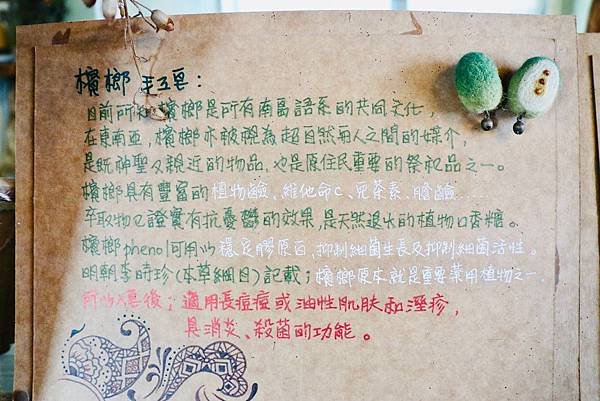 檳榔 手工皂：
目前所知檳榔是所有南島語系的共同文化，
在東南亞，檳榔亦被視為超自然與人之間的媒介，
是既神聖又親近的物品，也是原住民重要的祭祀品之一。
檳榔具有豐富的植物鹼、維他命C、兒茶素、膽鹼……
萃取物也證實有抗憂鬱的效果，是天然退火的植物口香糖。
檳榔phenol可用以穩定膠原白，抑制細菌生長及抑制細菌活性。
明朝李時珍(本草綱目)記載；檳榔原本就是重要藥用植物之一.
所以入皂後；適用長痘痘或油性肌膚和溼疹，
具消炎、殺菌的功能。